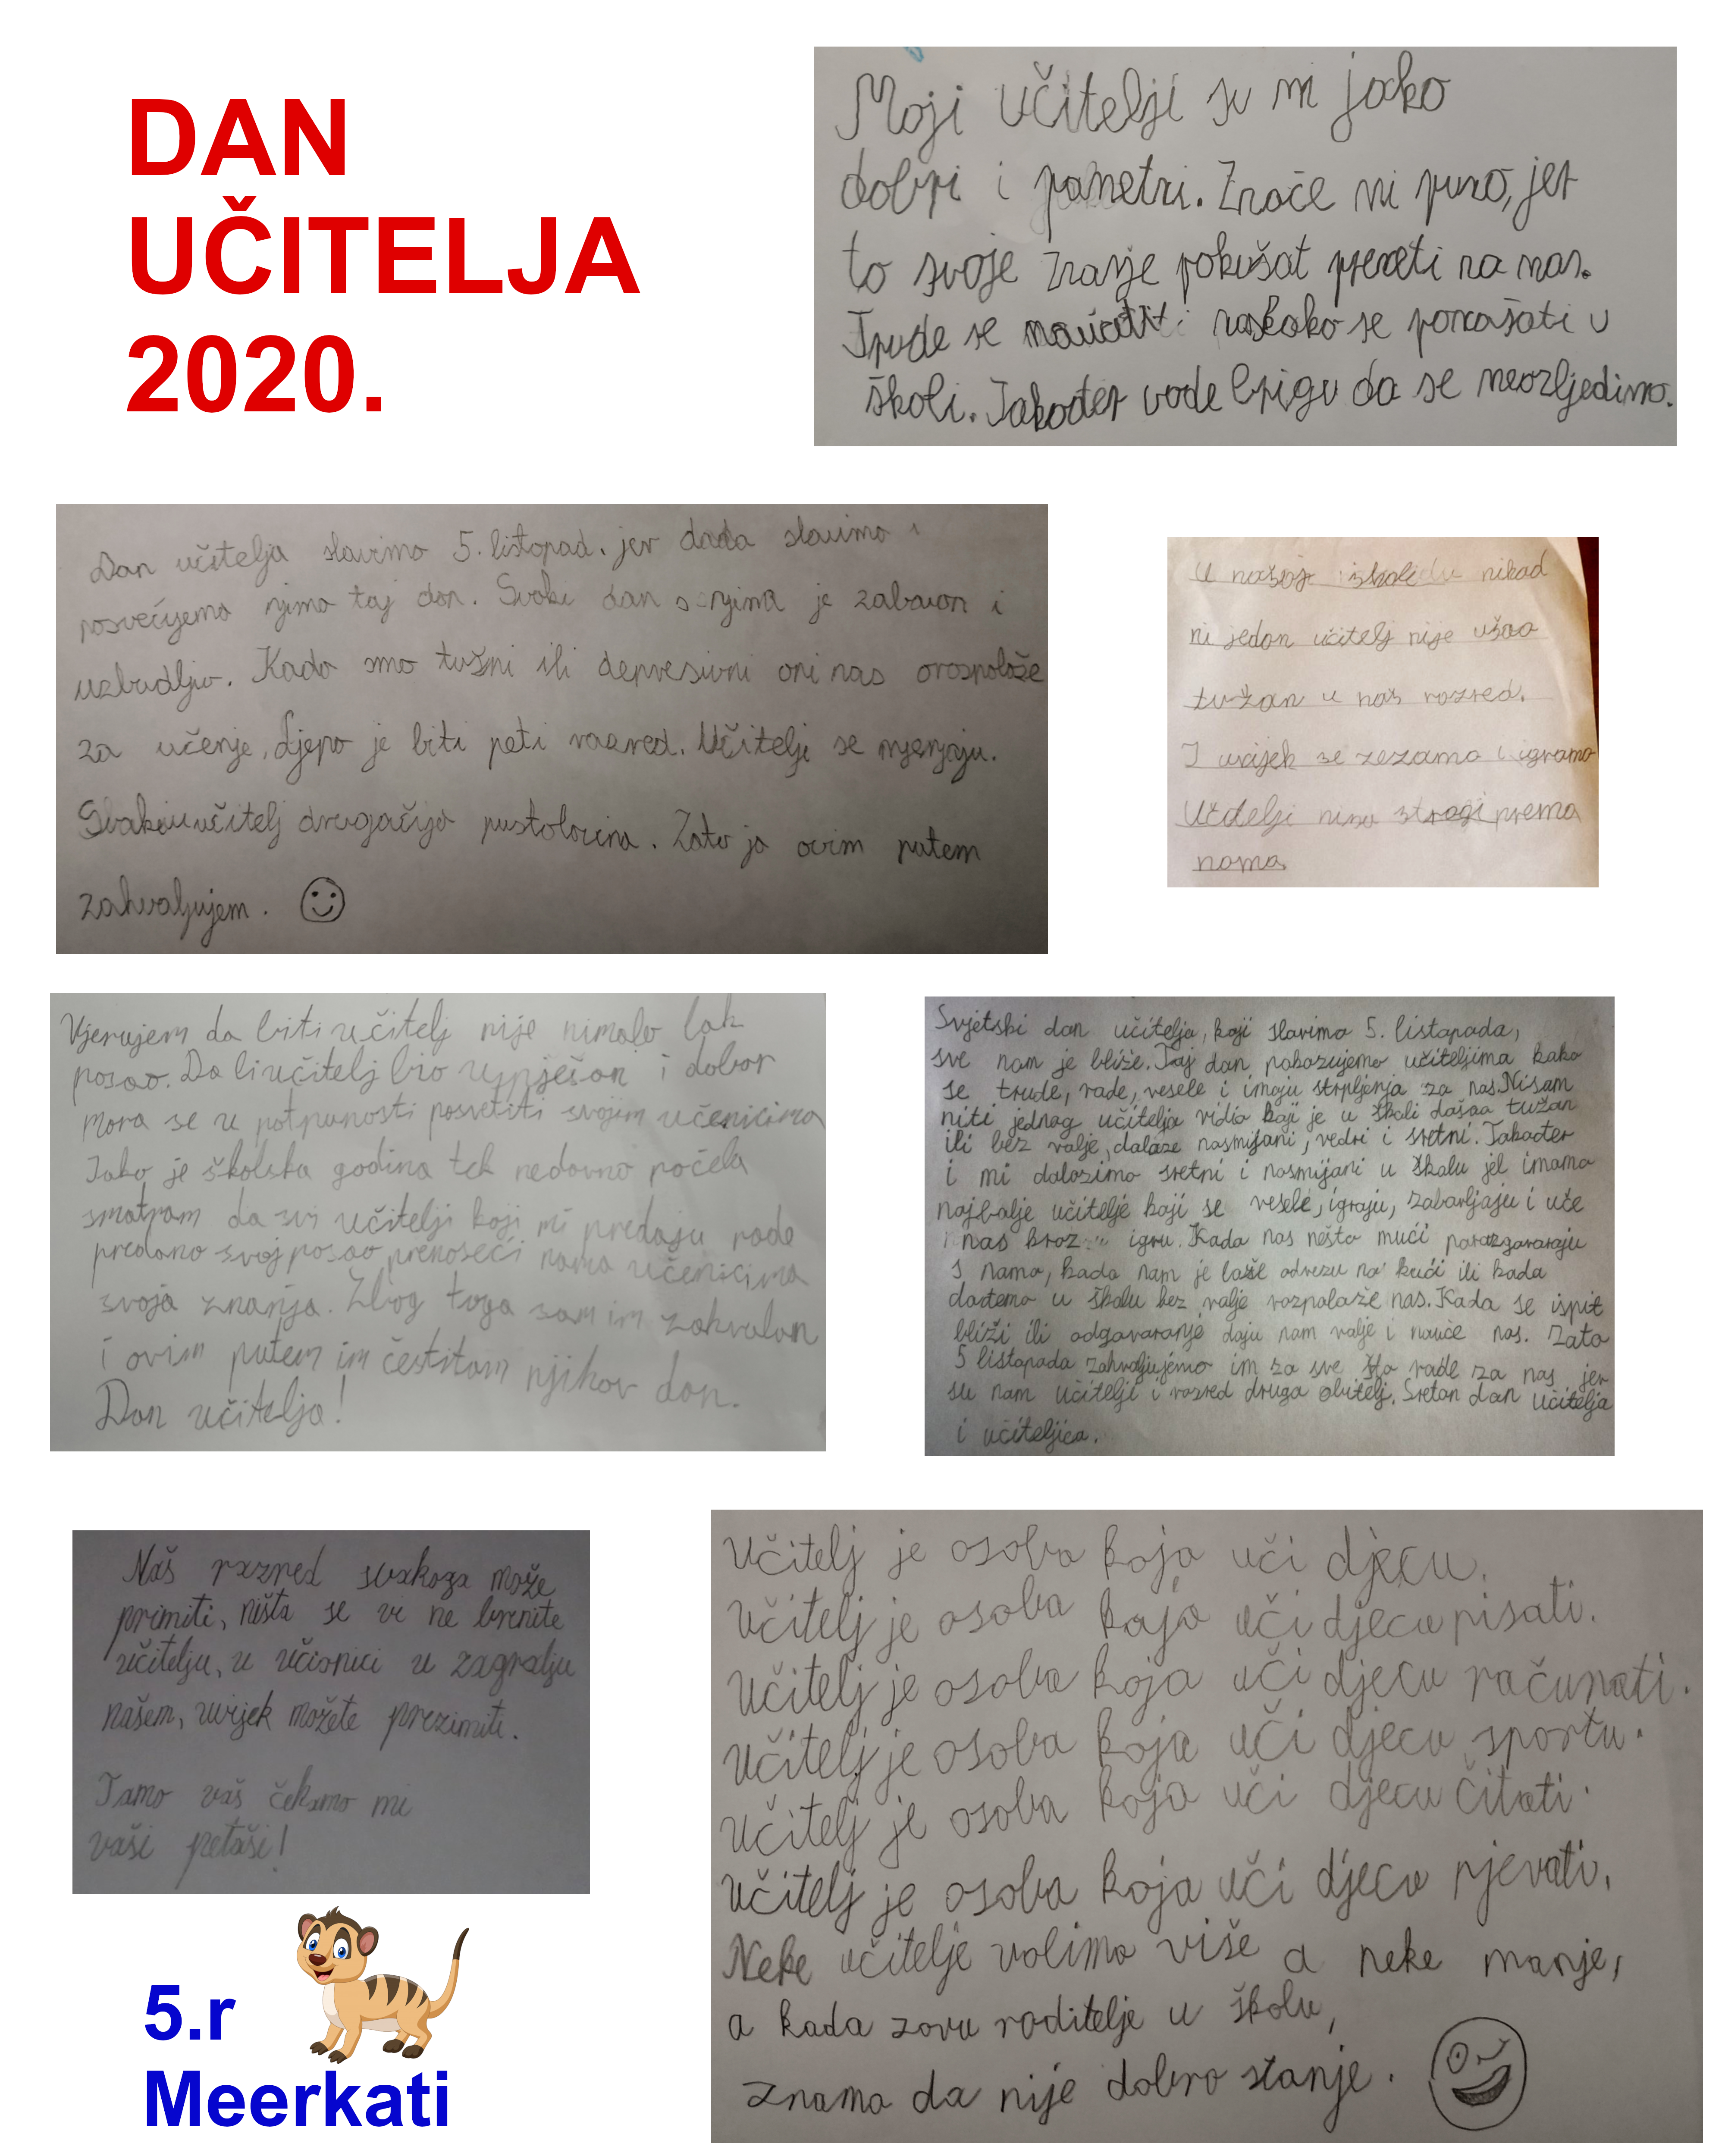 DAN
UČITELJA
2020.
Moji učitelji su mi jako
dobri i pametni. Znače mi puno, jer
to svoje znanje pokušat preneti na nas.
Trude se naučiti nas kako se ponašati u
školi. Također vode brigu da se neozljedimo.
Dan učitelja slavimo 5. listopad. jer dada slavimo i
posvećujemo njima taj dan. Svaki dan s njima je zabavan i
uzbudljiv. Kada smo tužni ili depresivni oni nas oraspolože
za učenje, ljepo je biti peti razred. Učitelji se mjenjaju.
Svaki učitelj drugačija pustolovina. Zato ja ovim putem
zahvaljujem.
U našoj školi nikad
ni jedan učitelj nije ušao
tužan u naš razred.
I uvijek se zezamo i igramo
Učitelji nisu strogi prema
nama
Vjerujem da biti učitelj nije nimalo lak
posao. Da bi učitelj bio uspješan i dobar
mora se u potpunosti posvetiti svojim učenicima
Iako je školska godina tek nedavno počela
smatram da svi učitelji koji mi predaju rade
predano svoj posao prenoseći nama učenicima
svoja znanja. Zbog toga sam im zahvalan
i ovim putem im čestitam njihov dan.
Dan učitelja!
Svjetski dan učitelja, koji slavimo 5. listopada,
sve nam je bliže. Taj dan pokazujemo učiteljima kako
se trude, rade, vesele i imaju strpljenja za nas. Nisam
niti jednog učitelja vidio koji je u školi došao tužan
ili bez volje, dolaze nasmijani, vedri i sretni. Također
i mi dolazimo sretni i nasmijani u školu jel imamo
najbolje učitelje koji se vesele, igraju, zabavljaju i uče
nas kroz igru. Kada nas nešto muči porazgovaraju
s nama, kada nam je loše odvezu na kući ili kada
dođemo u školu bez volje razpolože nas. Kada se ispit
bliži ili odgovaranje daju nam volje i nauče nas. Zato
5 listopada zahvaljujemo im za sve što rade za nas jer
su nam učitelji i razred druga obitelj. Sretan dan učitelja
i učiteljica.
Naš razred svakoga može
primiti, ništa se vi ne brinite
učitelju, u učionici u zagralju
našem, uvijek možete prezimiti.
Tamo vaš čekamo mi
vaši petaši!
Učitelj je osoba koja uči djecu.
Učitelj je osoba koja uči djecu pisati.
Učitelj je osoba koja uči djecu računati.
Učitelj je osoba koja uči djecu sportu.
Učitelj je osoba koja uči djecu čitati.
Učitelj je osoba koja uči djecu pjevati.
Neke učitelje volimo više a neke manje,
a kada zovu roditelje u školu,
znamo da nije dobro stanje.
5.r
Meerkati